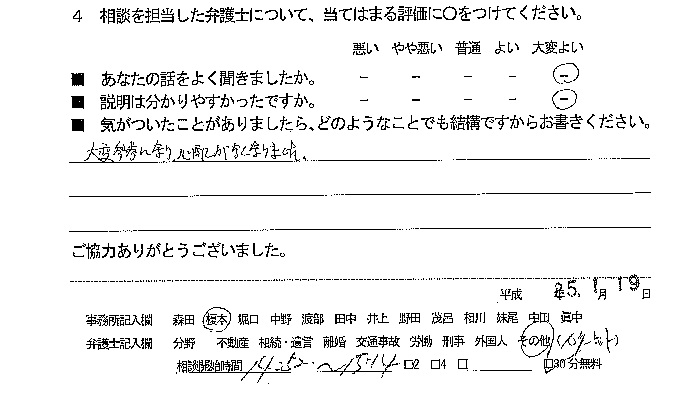 4 相談を担当した弁護士について、当てはまる評価に〇をつけてください。
悪い やや悪い 普通 よい 大変よい
■ あなたの話をよく聞きましたか。 － － － － －
■ 説明は分かりやすかったですか。 － － － － －
■ 気がついたことがありましたら、どのようなことでも結構ですからお書きください。
大変参考になり心配がなくなりました。
ご協力ありがとうございました。
平成 25年 1月 19日
事務所記入欄 森田 榎本 堀口 中野 渡部 田中 井上 野田 茂呂 相川 妹尾 中田 眞中
弁護士記入欄 分野 不動産 相続・遺言 離婚 交通事故 労働 刑事 外国人 その他
相談開始時間 14:52 ～ 15:14 □2 □4 □ □30分無料